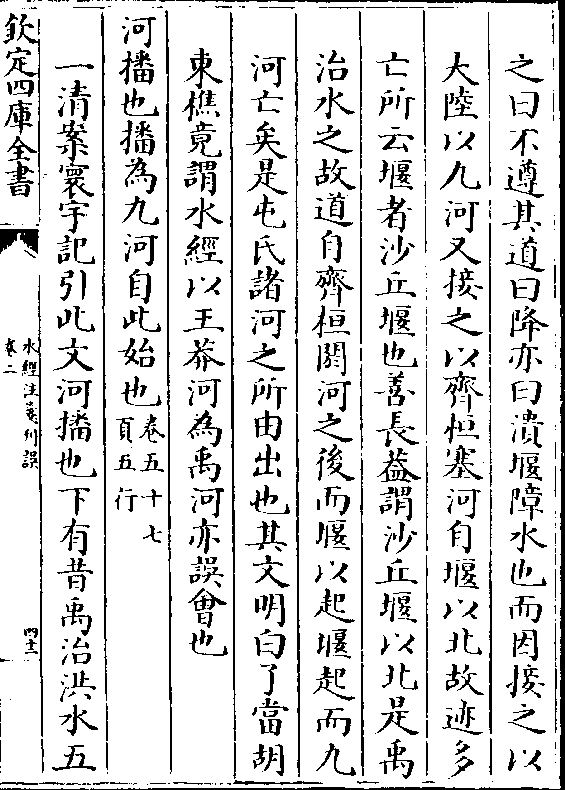 之曰不遵其道曰降亦曰潰堰障水也而因接之以
大陸以九河又接之以齊桓塞河自堰以北故迹多
亡所云堰者沙丘堰也善長葢謂沙丘堰以北是禹
治水之故道自齊桓閼河之後而堰以起堰起而九
河亡矣是屯氏諸河之所由出也其文明白了當胡
東樵竟謂水經以王莽河為禹河亦誤會也
河播也播為九河自此始也卷五十七
頁五行
一清案寰宇記引此文河播也下有昔禹治洪水五
欽定四庫全書
水經注箋刊誤
卷二